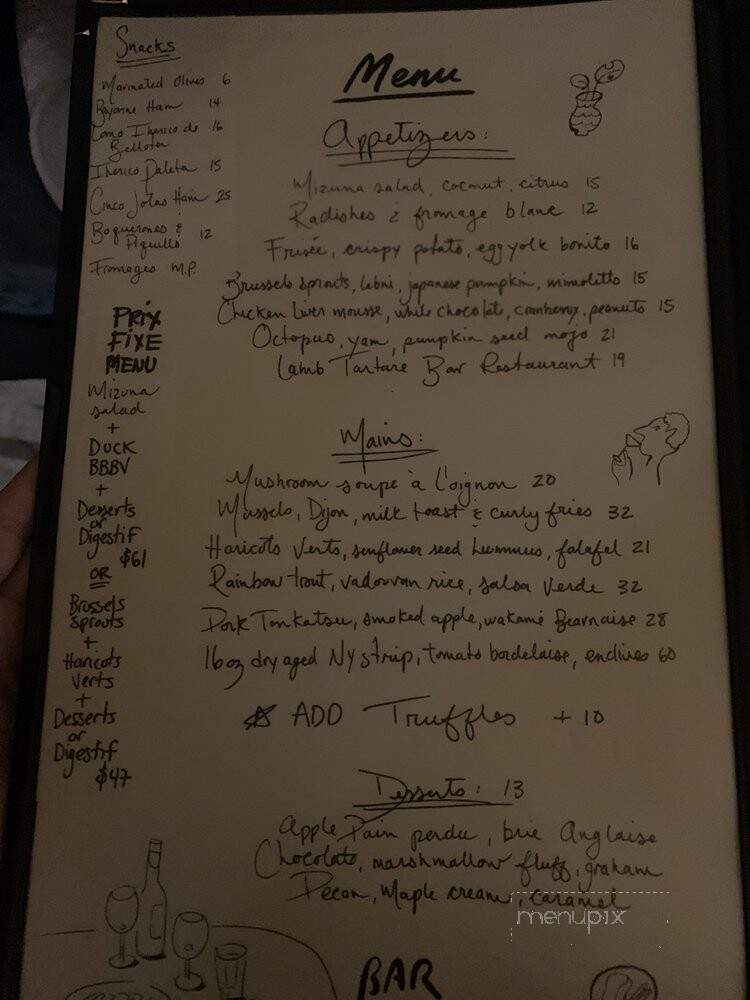 Snacks
Marinated Olives 6
Bayonne Ham 14
Lomo Iberico de 16
Bellota
Iberico Paleta 15
Cinco Jotas Ham 25
Boquerones & 12
Piquillo
Fromages M.P.
PRIX
FIXE
MENU
Mizuna
salad
+
DUCK
BBBV
+
Desserts
or
Digestif
$61
OR
Brussels
Sprouts
+
Haricots
Verts
+
Desserts
or
Digestif
$47
Menu
Appetizers:
Mizuna salad, coconut, citrus 15
Radishes & fromage blanc 12
Frisée, crispy potato, egg yolk bonito 16
Brussels sprouts, labni, japanese pumpkin, mimolette 15
Chicken liver mousse, white chocolate, cranberry, peanuts 15
Octopus, yam, pumpkin seed mojo 21
Lamb Tartare Bar Restaurant 19
Mains:
Mushroom soupe à l'oignon 20
Mussels, Dijon, milk toast & curly fries 32
Haricots Verts, sunflower seed hummus, falafel 21
Rainbow trout, vadouvan rice, salsa verde 32
Pork Tonkatsu, smoked apple, wakamé Bearnaise 28
16oz dry aged NY strip, tomato bordelaise, endives 60
ADD Truffles +10
Desserts: 13
Apple Pain perdu, brie Anglaise
Chocolate, marshmallow fluff, graham
Pecan, Maple cream, caramel
menupix
BAR